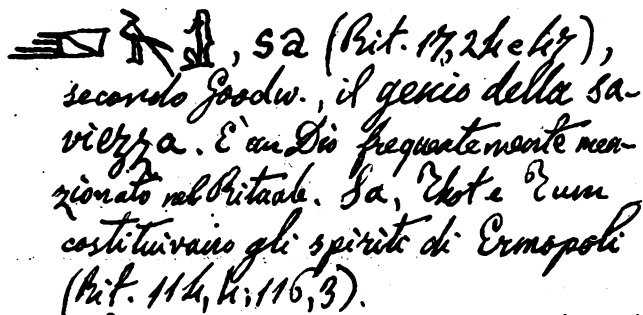 , sa (Rit. 17, 24 e 47),
secondo Goodw., il genio della sa-
viezza. È un Dio frequentemente men-
zionato nel Rituale. Sa, Thot e Tum
costituivano gli spiriti di Ermopoli
(Rit. 114, 4; 116, 3).